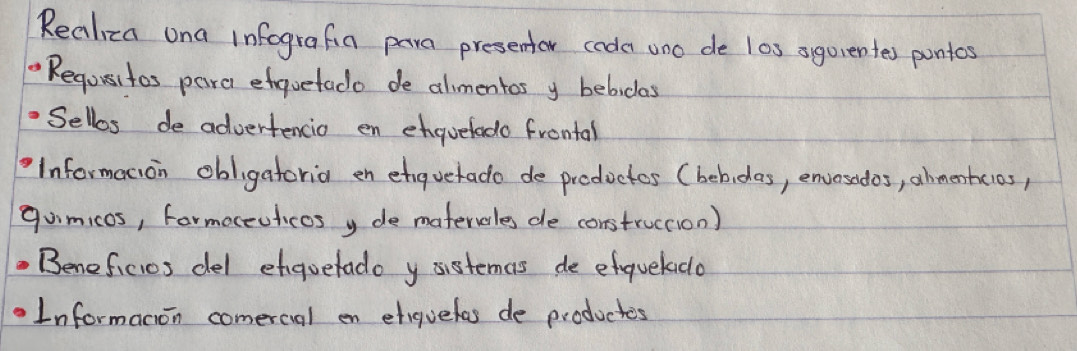 Realiza una infografia para presentar cada uno de los siguientes puntos
• Requisitos para etiquetado de alimentos y bebidas
• Sellos de advertencia en etiquetado frontal
• Información obligatoria en etiquetado de productos (bebidas, envasados, alimenticios,
químicos, farmaceuticos y de materiales de construccion)
• Beneficios del etiquetado y sistemas de etiquetado
• Información comercial en etiquetas de productos